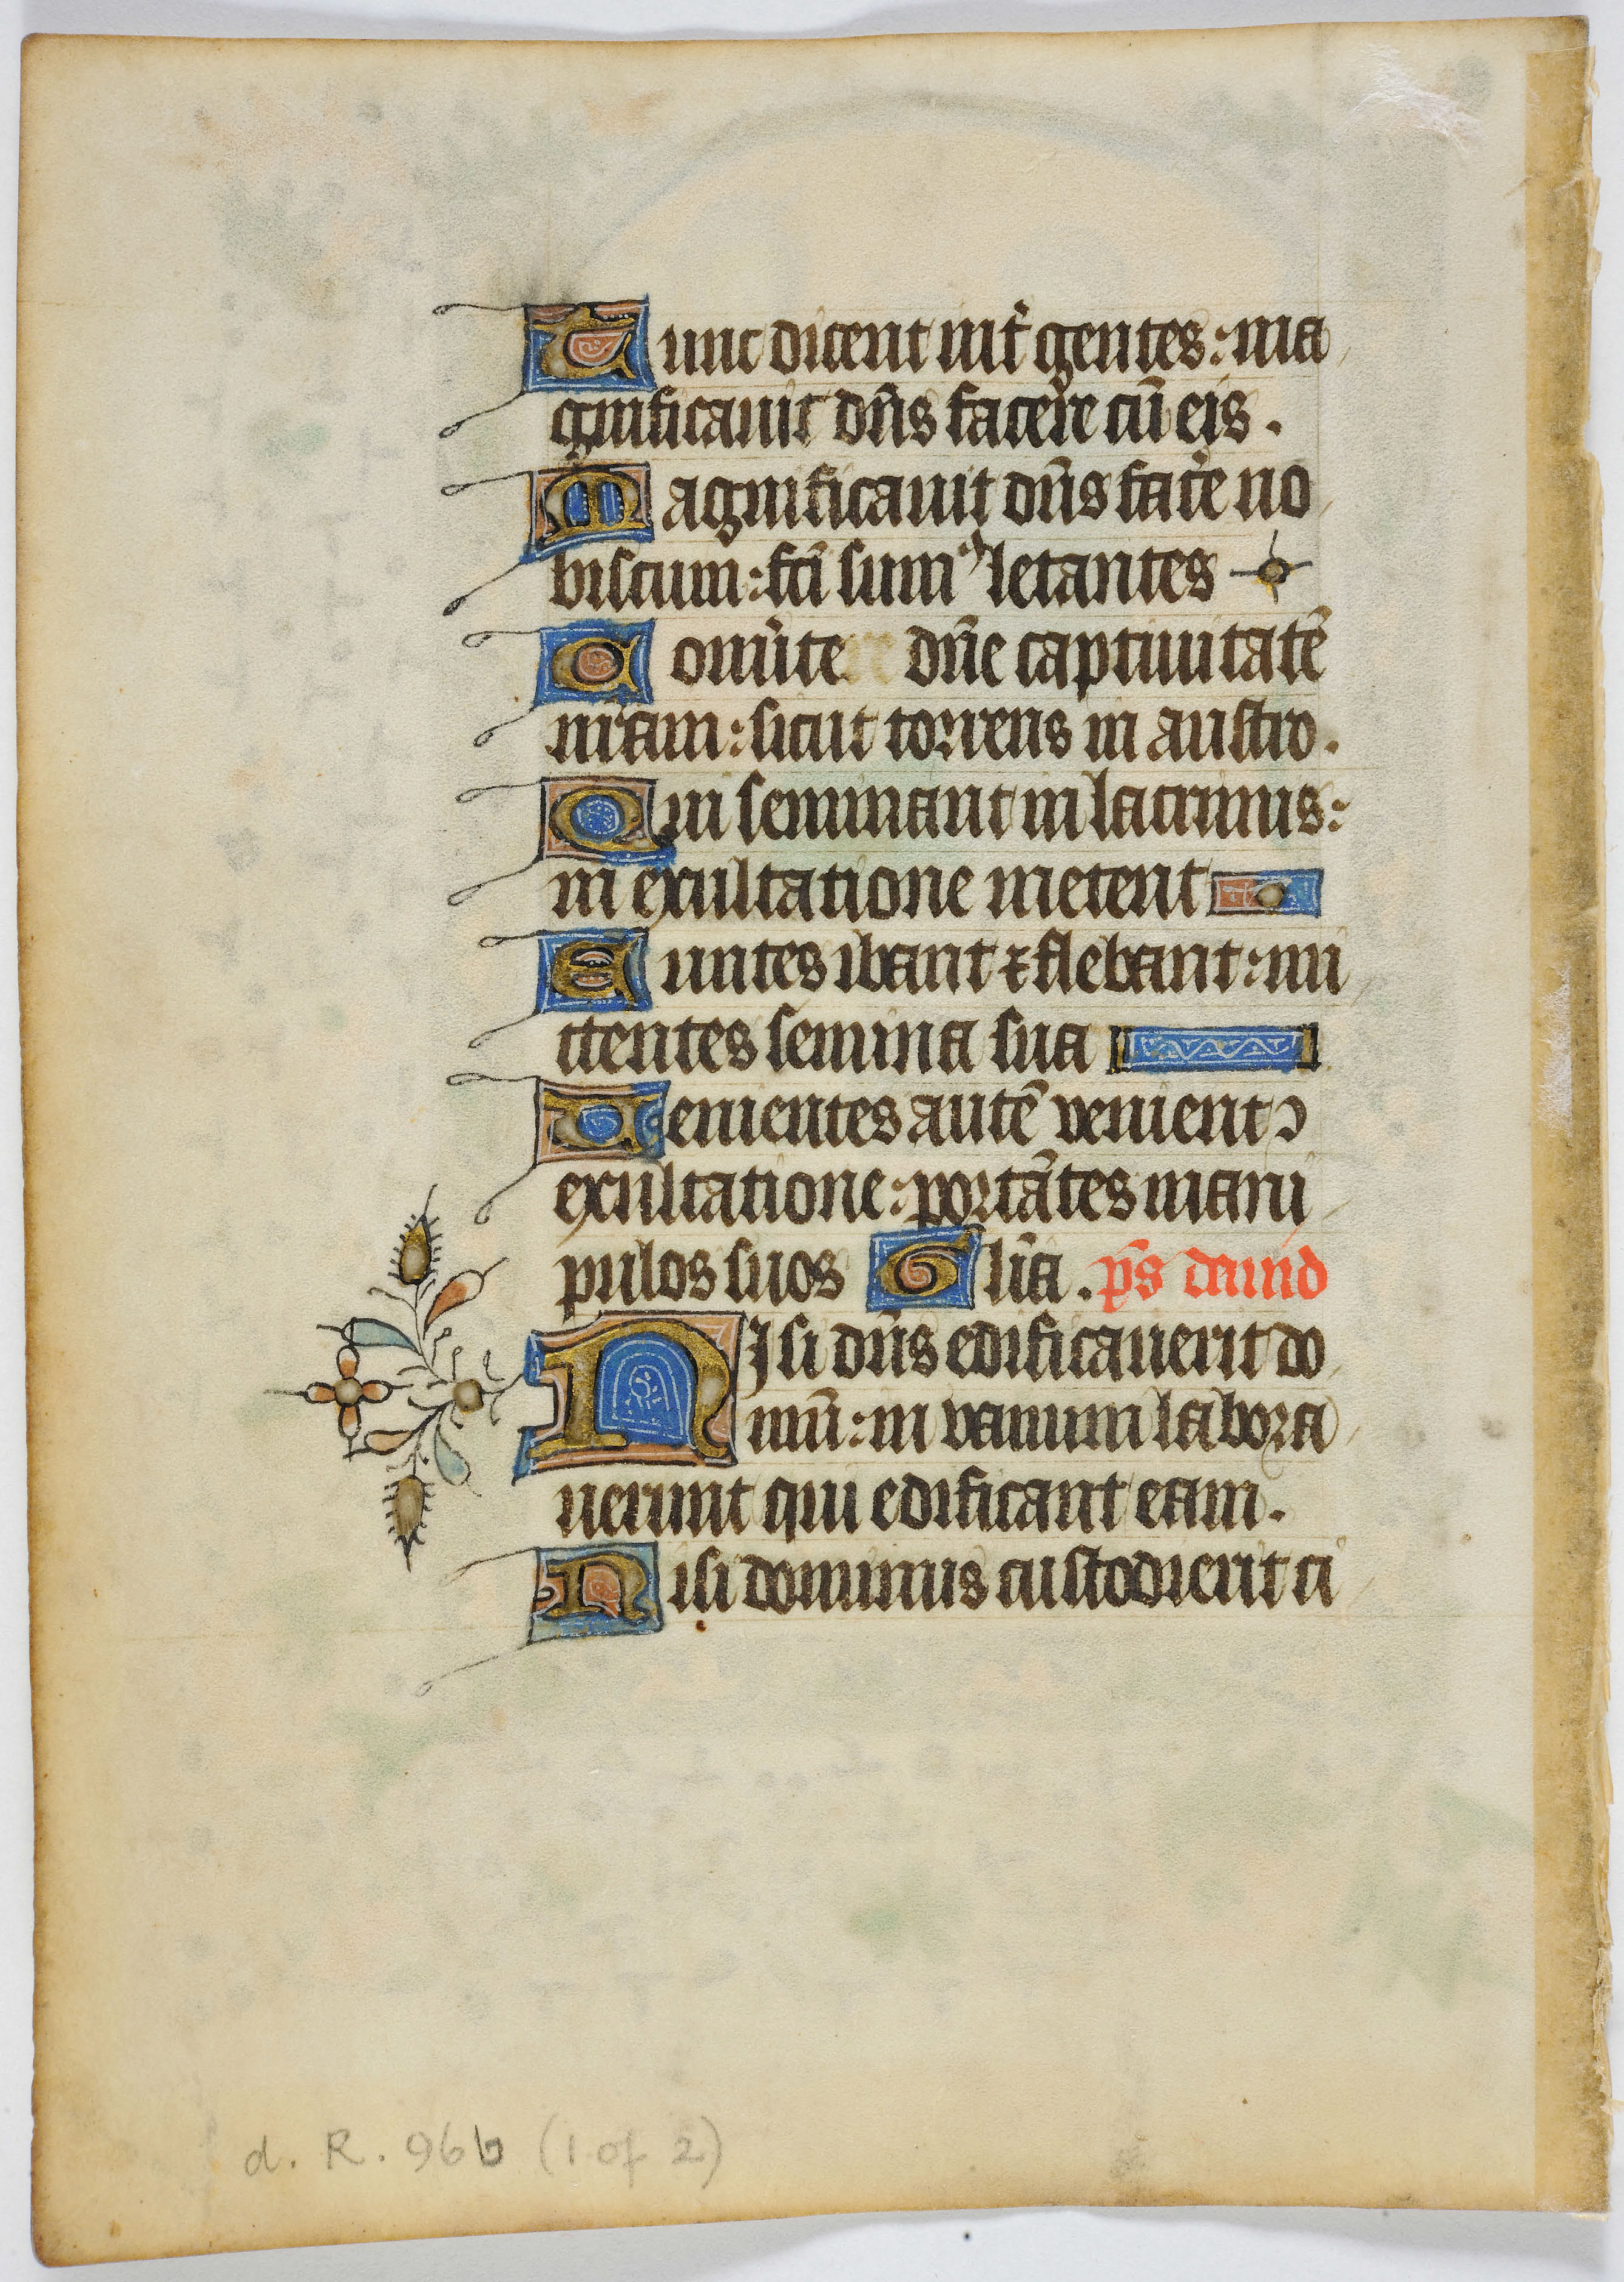 Tunc dicent int̾ gentes : ma
gnificauit dn̄s facere cū eis .
Magnificauit dn̄s fac̾e no
biscum : fc̄i sumꝰ letantes
Conu̾te dn̄e captiuitatē
nr̄am : sicut torrens in austro .
Qui seminant in lacrimis :
in exultatione metent
Euntes ibant ⁊ flebant : mi
ttentes semina sua
Uenientes autē venient ↄ
exultatione : portātes mani
pulos suos Glīa . p̄s dauid
NIsi dn̄s edificauerit do
mū : in vanum labora
uerunt qui edificant eam .
Nisi dominus custodierit ci
d. R. 96b (1 of 2)